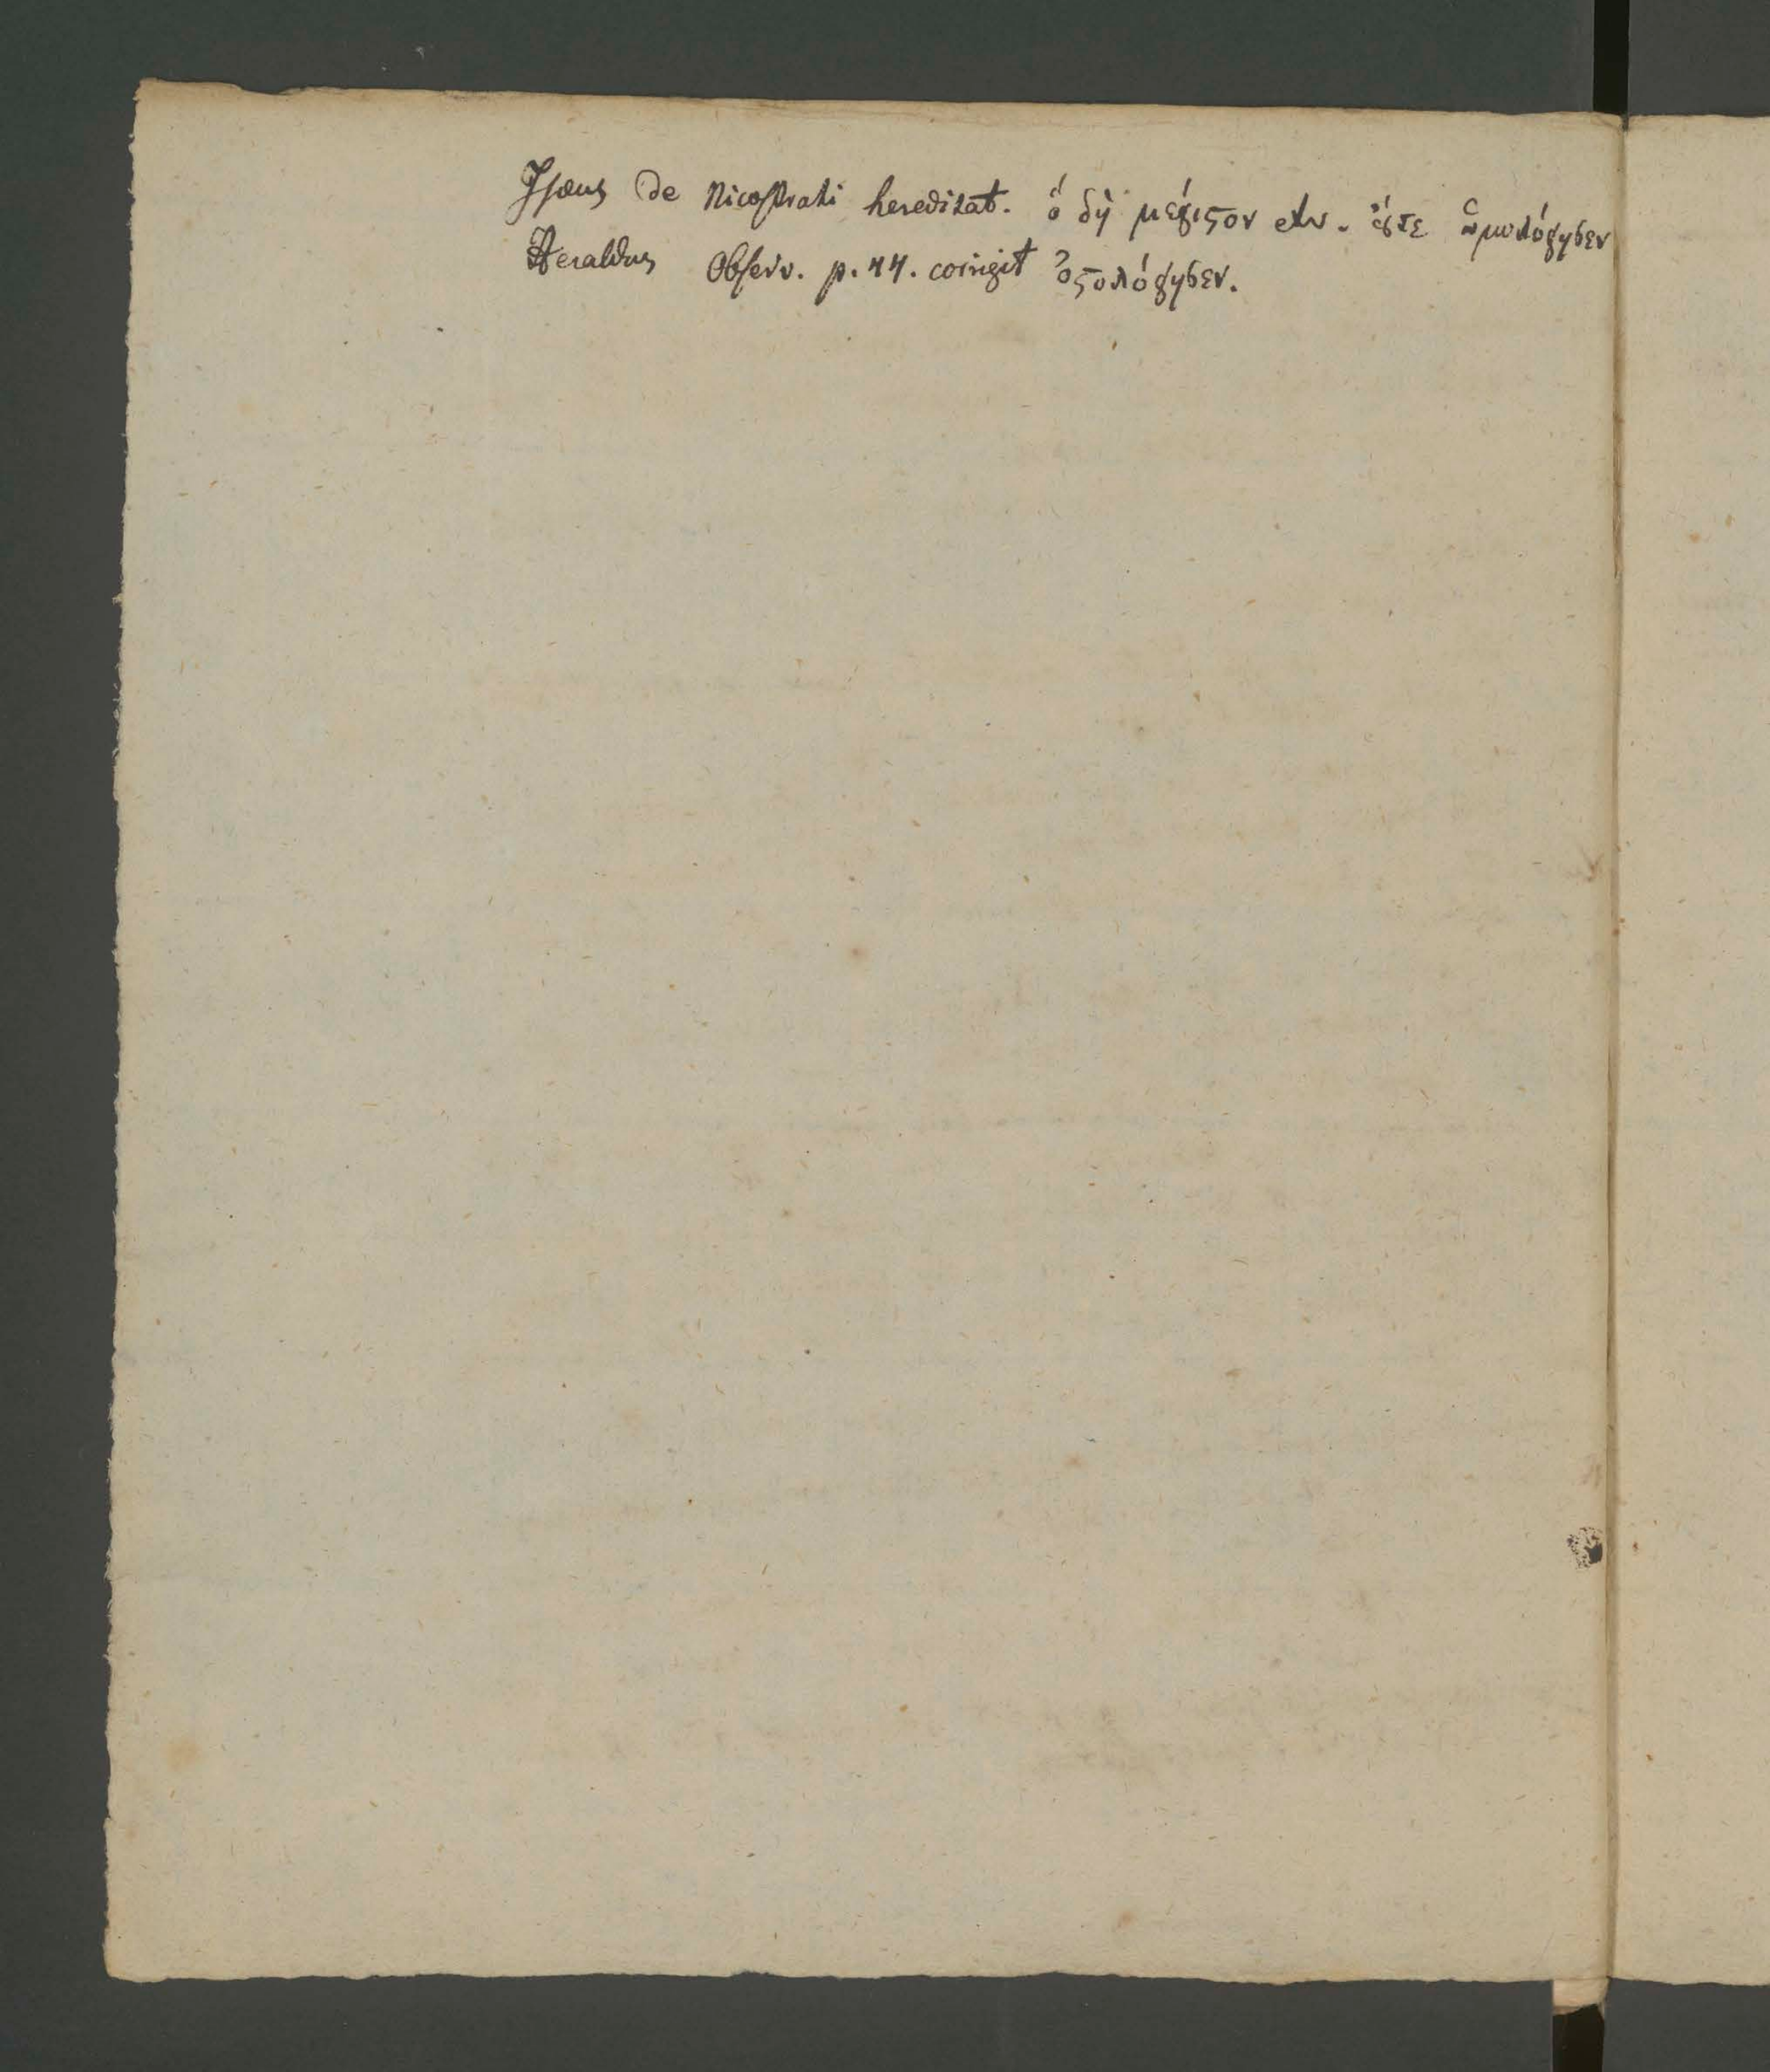 Isaeus de Nicostrati hereditat. ὁ δὴ μέγιϛον ἦν. ὄϛε ὡμολόγησεν
Heraldus Observ. p. 44. corrigit ὀϛολόγησεν.